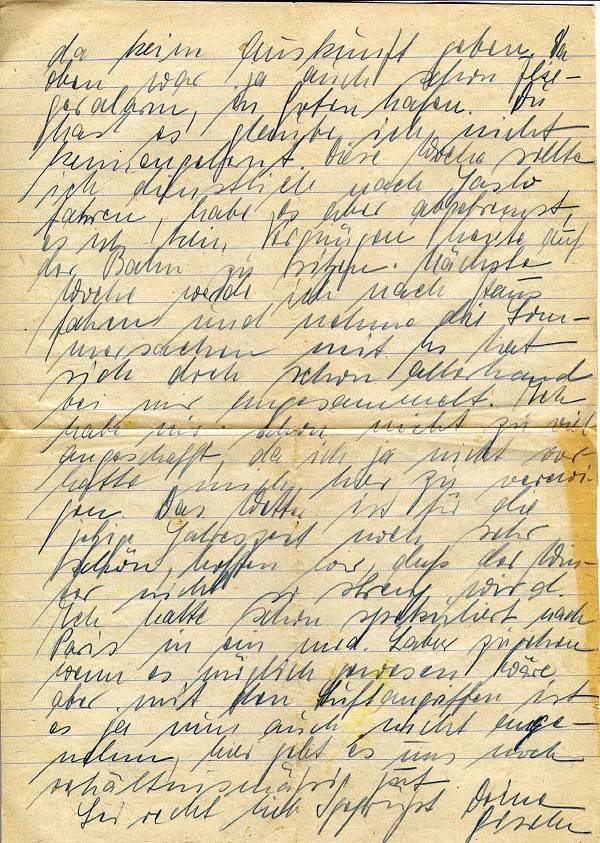 da kein Auskunft geben. Da
oben war ja auch schon Flie-
geralarm, in Gotenhafen. Du
has es glaube ich nicht
kennengelernt. Diese Woche sollte
ich dienstlich nach Jaslo
fahren, habe es aber abgebremst,
es ist kein Vergnügen heute auf
der Bahn zu sitzen. Nächste
Woche werde ich nach Haus
fahren und nehme die Som-
mersachen mit. Es hat
sich doch schon allerhand
bei mir angesammelt. Ich
habe mir schon nicht zu viel
angeschafft, da ich ja nicht vor
hatte mich hier zu verewi-
gen. Das Wetter ist für die
jetzige Jahreszeit noch sehr
schön, hoffen wir, daß der Win-
ter nicht so streng wird.
Ich hatte schon spekuliert nach
Paris in ein med. Labor zu gehen
wenn es möglich gewesen wäre,
aber mit den Luftangriffen ist
es ja nun auch nicht ange-
nehm, hier geht es uns noch
verhältnismässig gut.
Sei recht lieb gegrüsst Deine